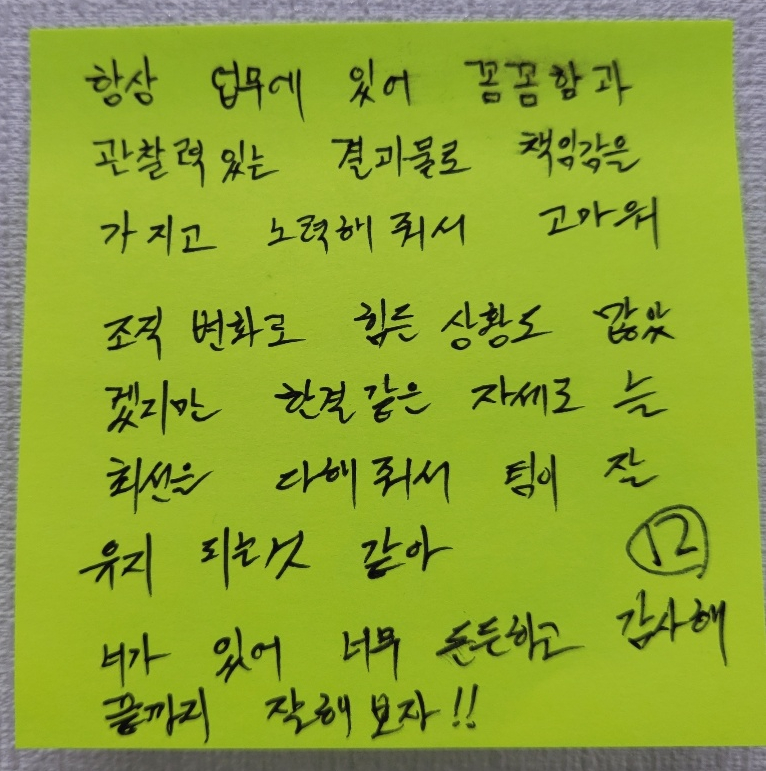 항상 업무에 있어 꼼꼼함과
관찰력있는 결과물로 책임감을
가지고 노력해줘서 고마워
조직 변화로 힘든 상황도 많았
겠지만 한결같은 자세로 늘
최선을 다해줘서 팀이 잘
유지 되는것 같아
12
너가 있어 너무 든든하고 감사해
끝까지 잘해보자!!